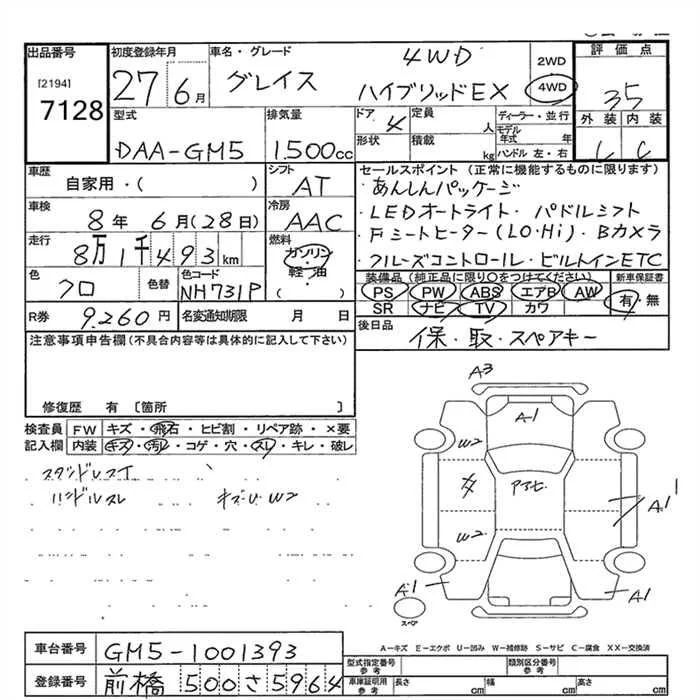 出品番号 初度登録年月 車名・グレード 4WD 2WD 評価点
[2194] 7128 27年 6月 グレイス ハイブリッドEX 4WD 35
型式 排気量 ドア 定員 ディーラー・並行 外装 内装
DAA-GM5 1.500cc 4 人 モデル年式 年
形状 積載 kg ハンドル 左・右 C
車歴 シフト セールスポイント (正常に機能するものに限ります)
自家用・( ) AT あんしんパッケージ
車検 冷房 LEDオートライト・パドルシフト
8年 6月(28日) AAC Fシートヒーター(LO・Hi)・Bカメラ
走行 燃料 クルーズコントロール・ビルトインETC
8万1千493km ガソリン・軽油・( )
装備品 (純正品に限り○をつけてください) 新車保証書
色 色替 色コード PS PW ABS エアB AW 有・無
クロ NH731P SR ナビ TV カワ
R券 9.260円 名変通知期限 月 日 後日品
保・取・スペアキー
注意事項申告欄 (不具合内容等は具体的に記入して下さい)
修復歴 有 [箇所 ]
検査員 FW キズ・飛石・ヒビ割・リペア跡・×要
記入欄 内装 キズ・汚レ・コゲ・穴・スレ・キレ・破レ
ハンドルスレ キズU W2
A3
A1
W2
W2
A1
A1
A1
スペア
A-キズ E-エクボ U-凹み W-補修跡 S-サビ C-腐食 XX-交換済
車台番号 GM5-1001393
型式指定番号 参考 類別区分番号 参考
登録番号 前橋 500 さ 5964
車庫証明用 参考 長さ cm 幅 cm 高さ cm